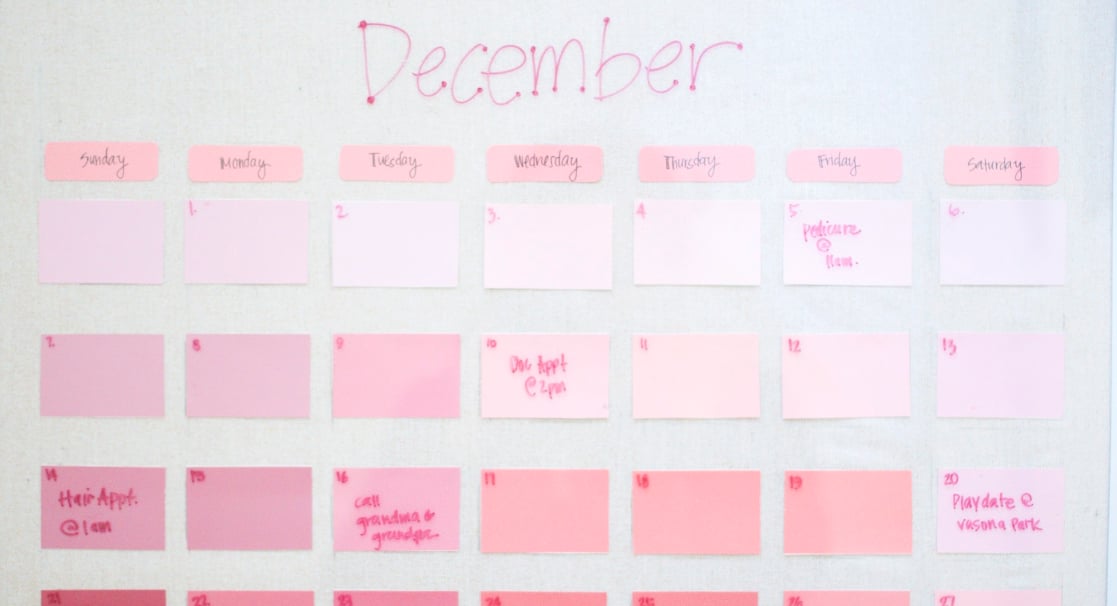 December
Sunday Monday Tuesday Wednesday Thursday Friday Saturday
1. 2 3. 4 5. 6.
pedicure
@
11am.
7. 8 9 10 11 12 13
Doc Appt
@ 2pm
14 15 16 17 18 19 20
Hair Appt.
@ 1am
call
grandma &
grandpa
Playdate @
vasona Park
21 22 23 24 25 26 27